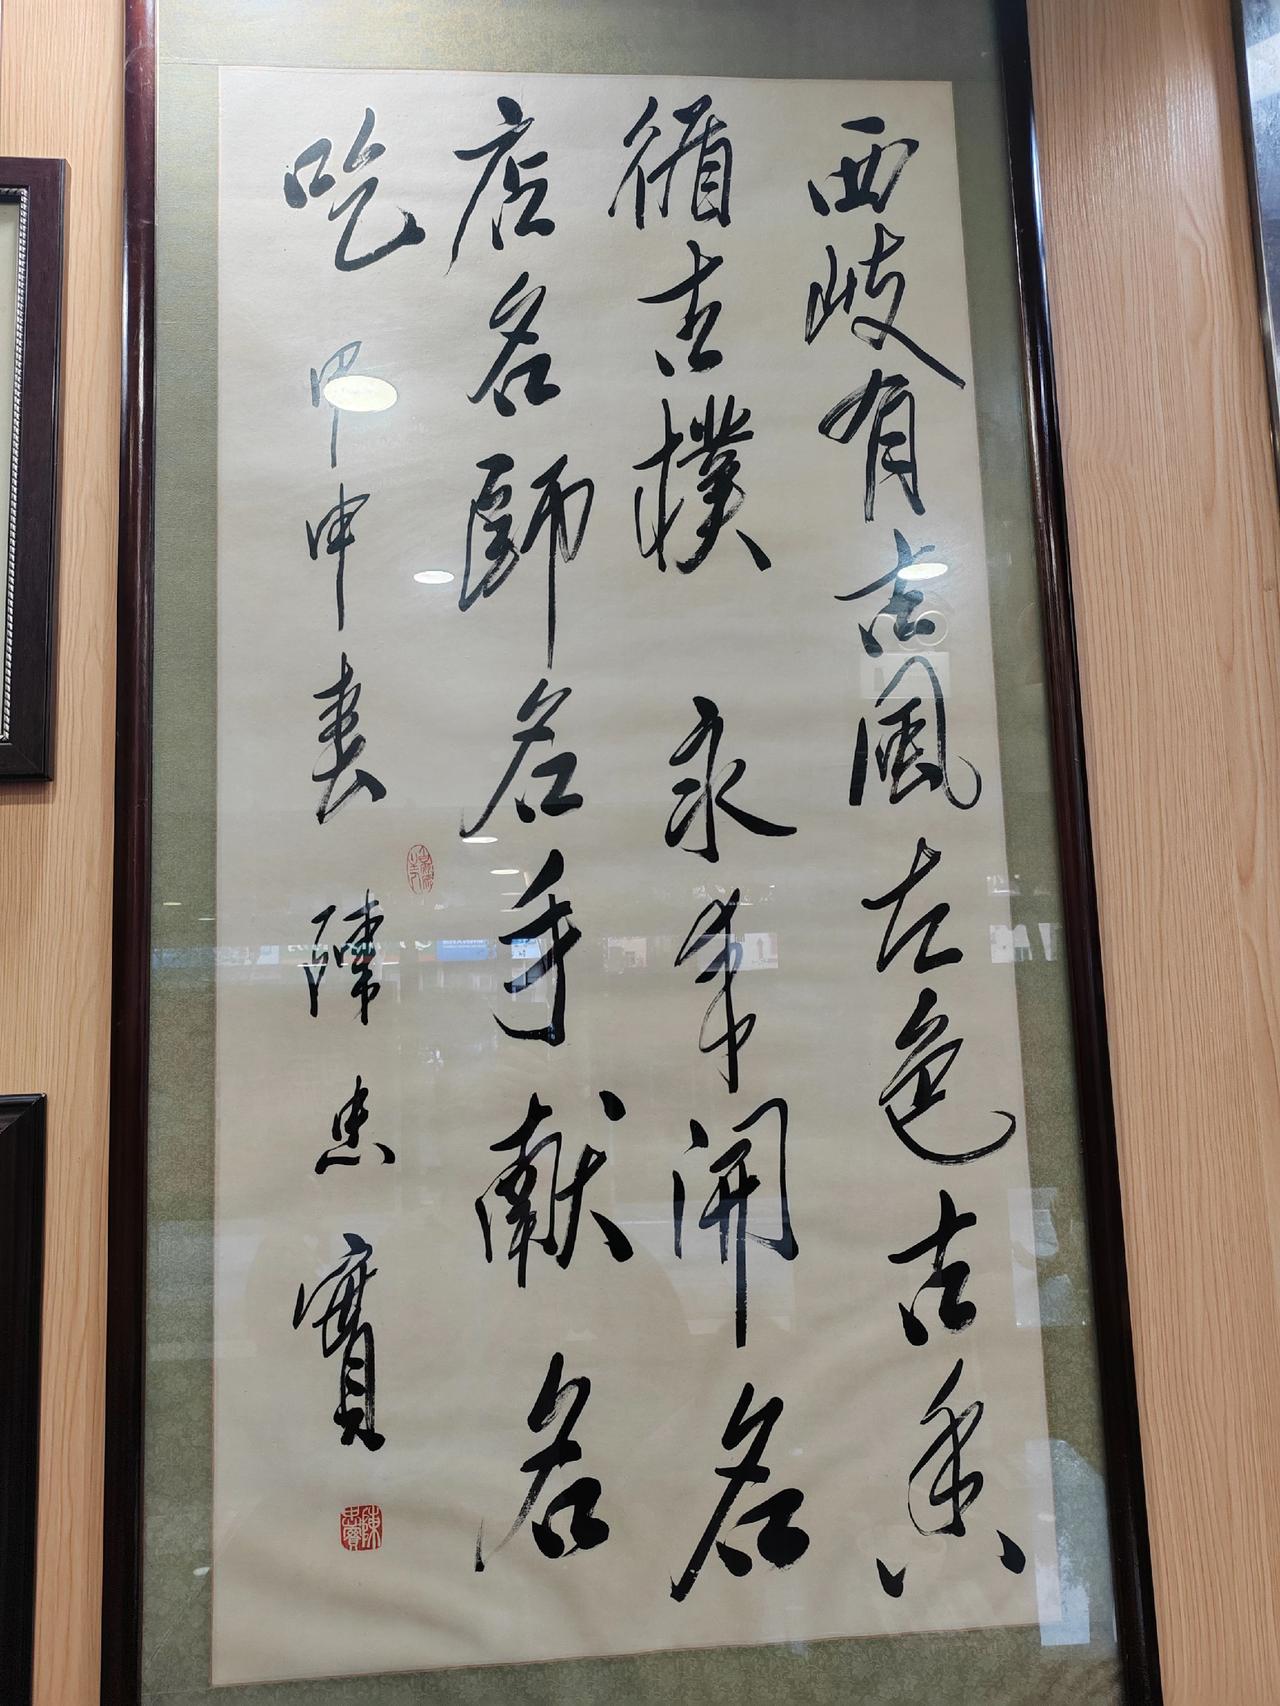 西岐有古風古色古香
循古樸 永年開名
店名師名手献名
吃 甲申春 陳忠實
陳忠實